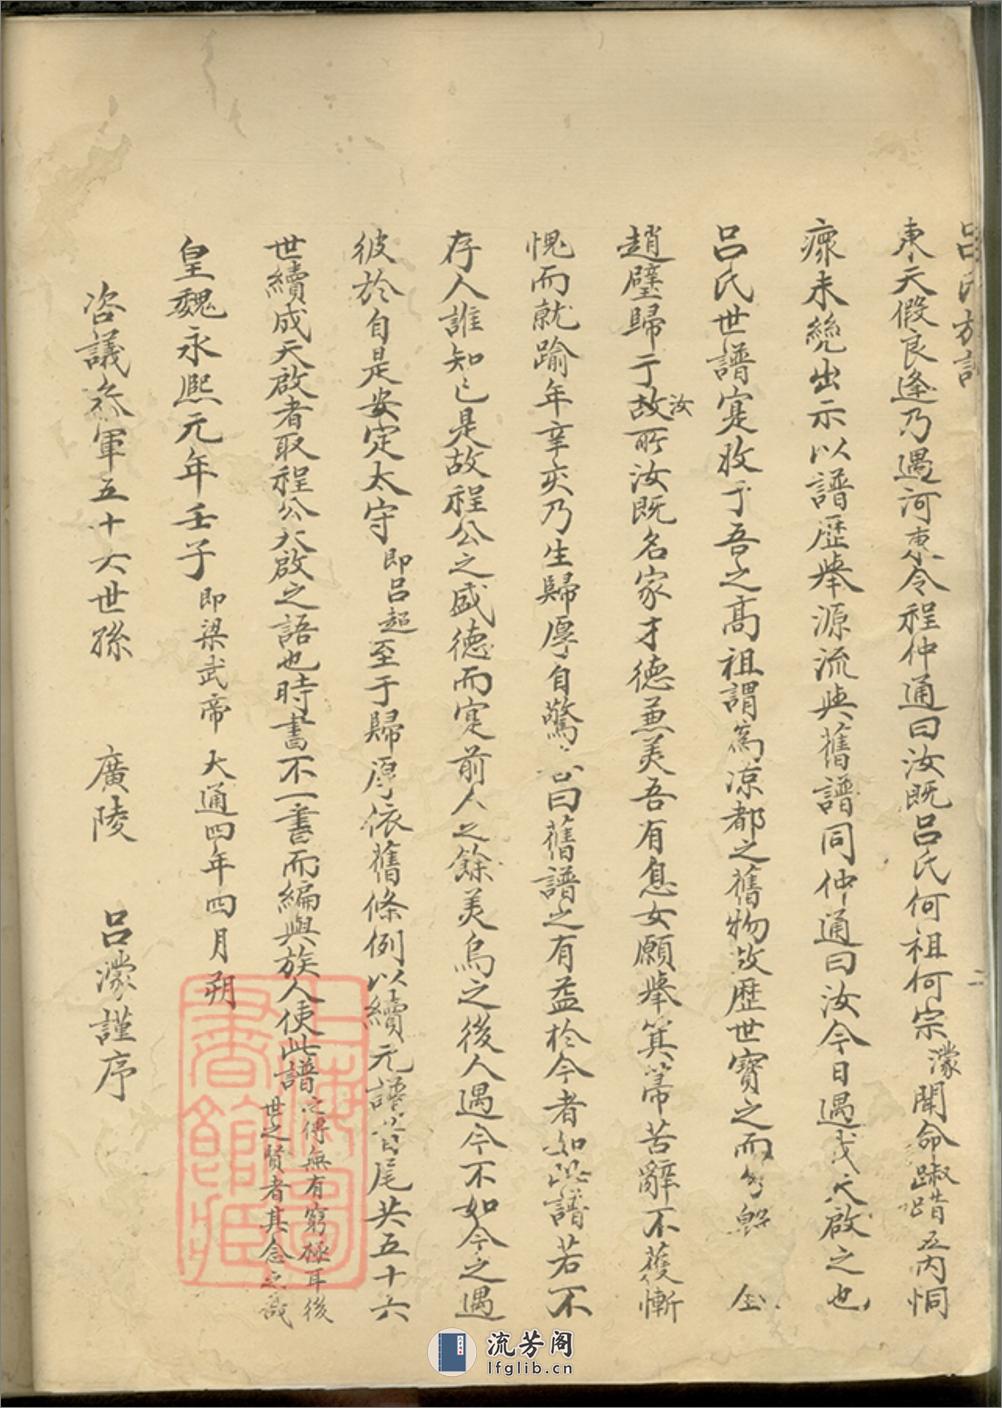 呂氏族譜
東天假良逢乃遇河東令程仲通曰汝既呂氏何祖何宗濛聞命踧踖五內恫
瘝未絶出示以譜歷舉源流與舊譜同仲通曰汝今日遇我天啟之也
呂氏世譜寔收于吾之高祖謂為凉都之舊物故歷世寶之而
趙璧歸于汝故所汝既名家才德兼美吾有息女願舉箕箒苦辭不獲慚
愧而就踰年辛亥乃生歸厚自驚 曰舊譜之有益於今者如此譜若不
存人誰知之是故程公之盛德而寔前人之餘美烏之後人遇今不如今之遇
彼於自是安定太守即呂超至于歸厚依舊條例以續元譜首尾共五十六
世續成天啟者取程公天啟之語也時書不一書而編與族人使此譜之傳無有窮極耳後
世之賢者其念之哉
皇魏永熙元年壬子即梁武帝大通四年四月朔
咨議叅軍五十六世孫 廣陵 呂濛謹序
二
上海圖書館藏
流芳阁
lfglib.cn